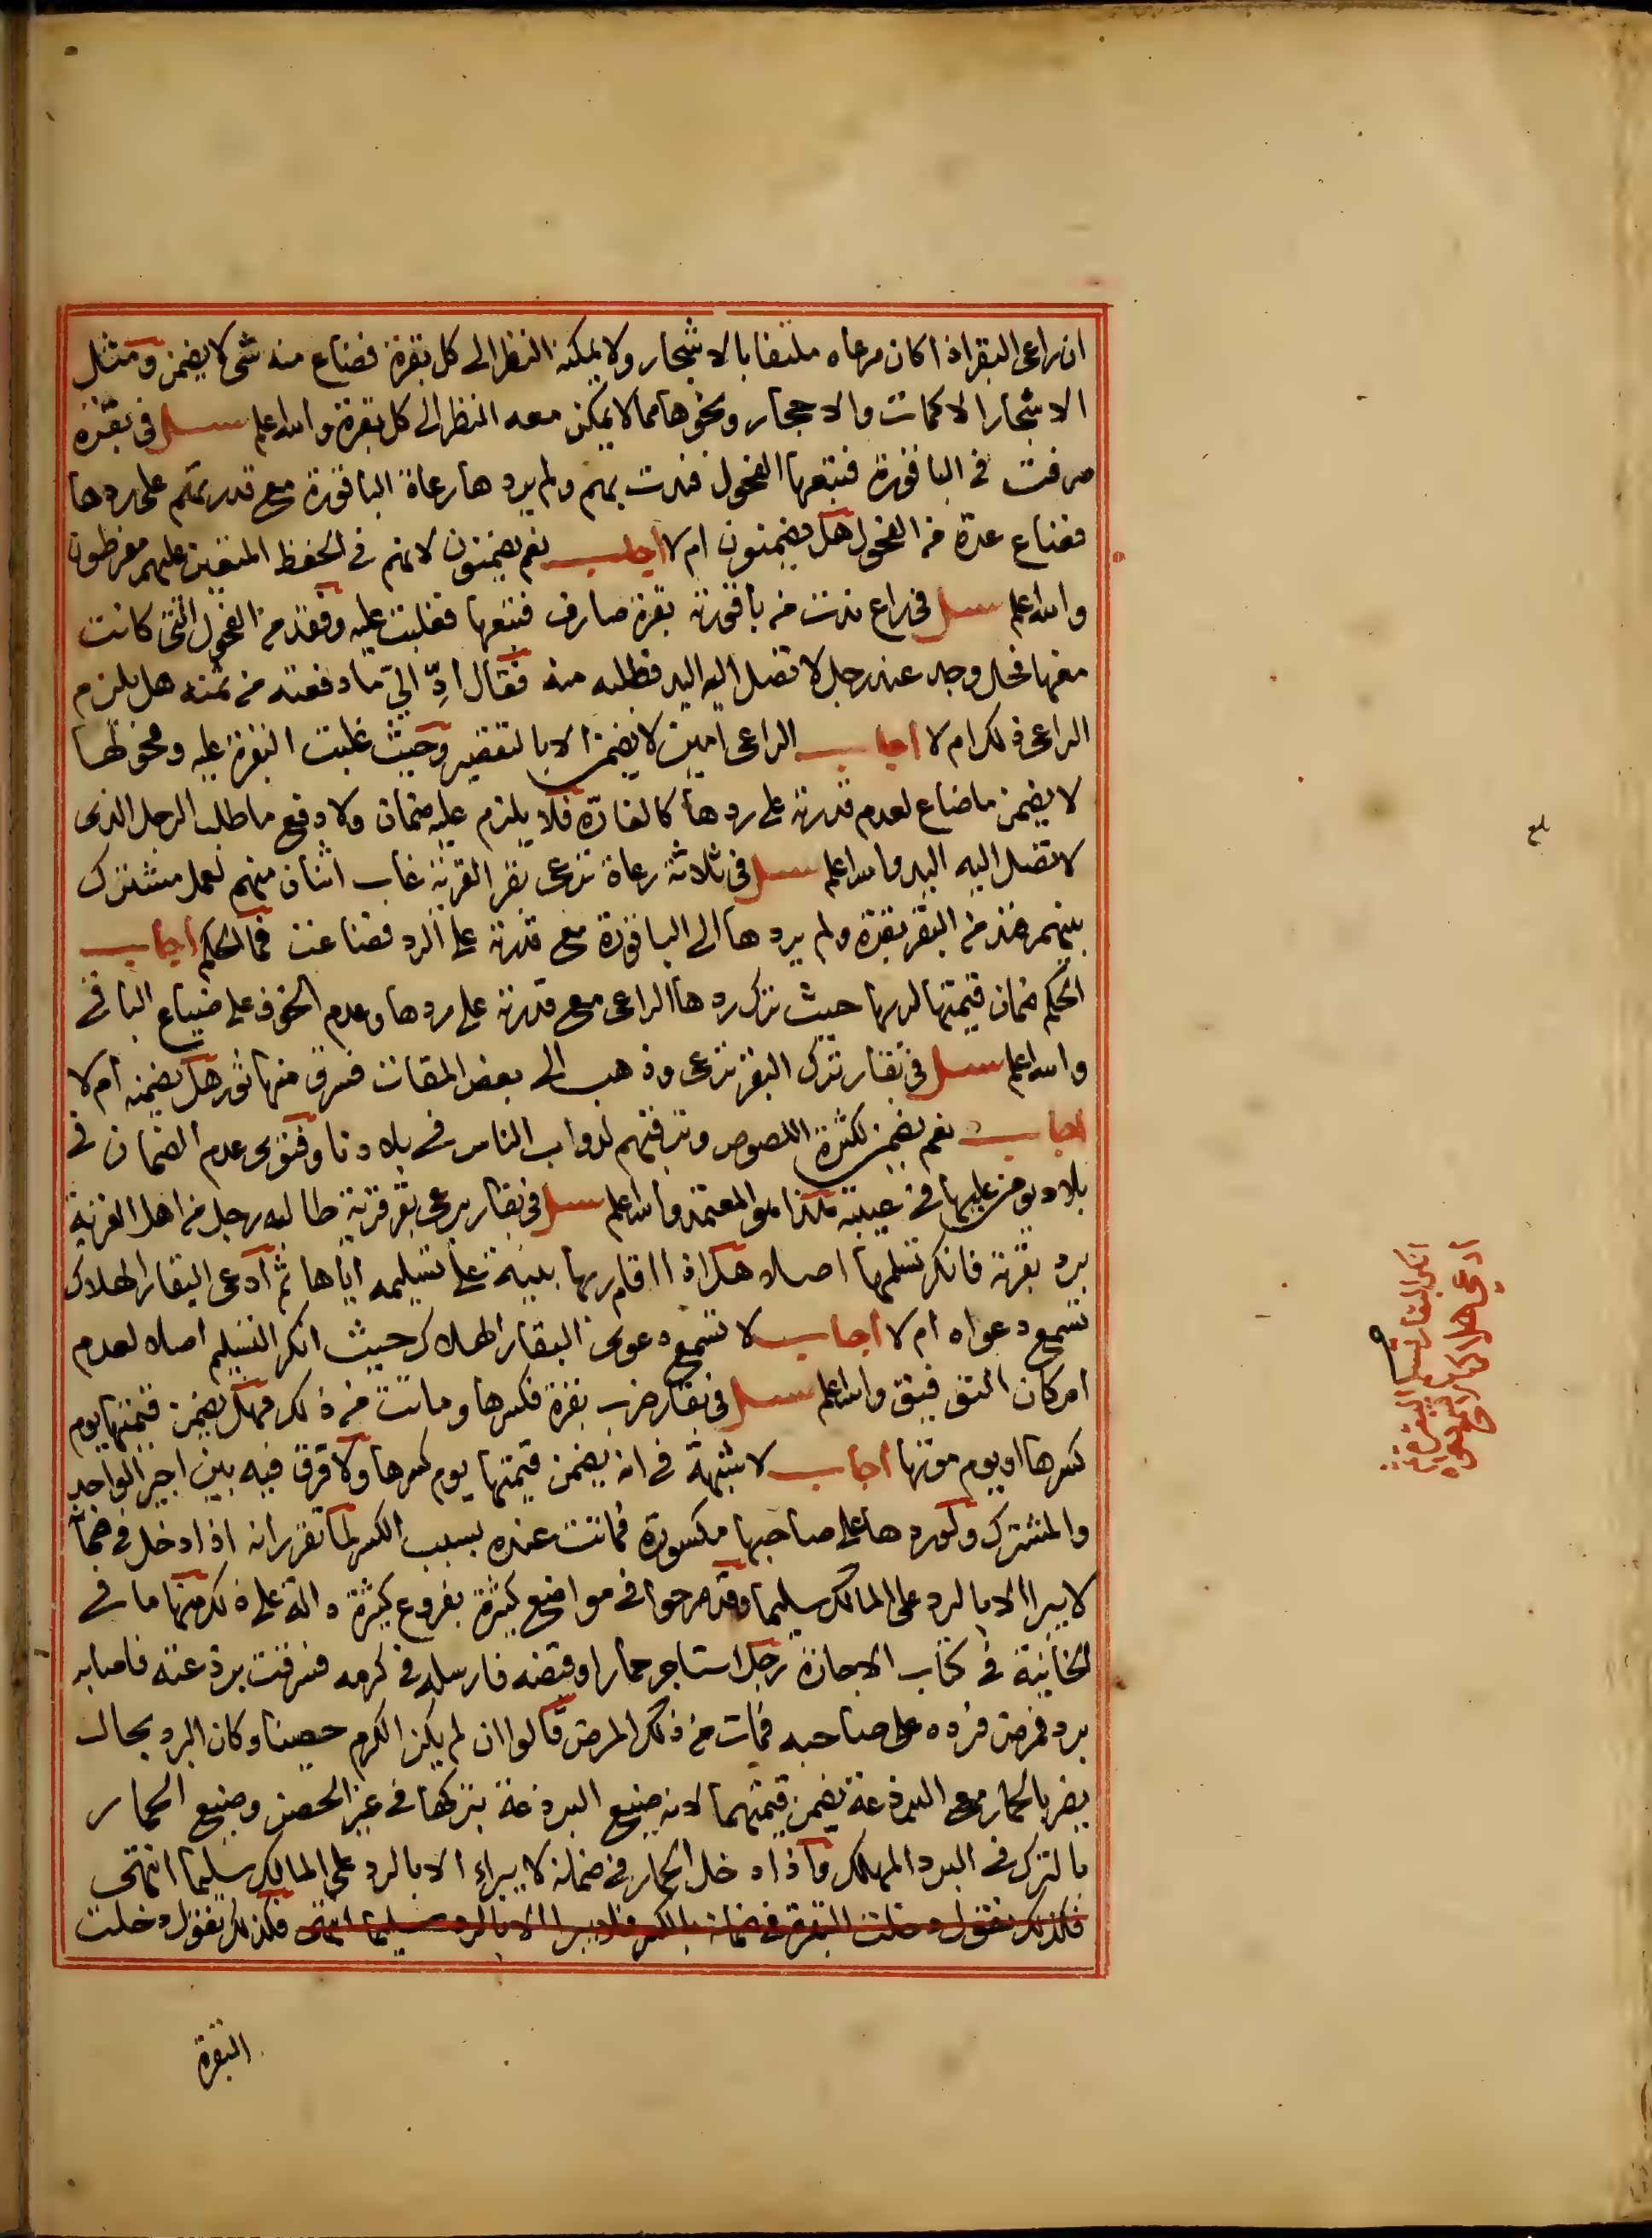 ان راعى البقر اذا كان مرعاه ملتفا بالاشجار ولا يمكنه النظر الى كل بقرة فضاع منه شى لا يضمن ومثل
الاشجار الاكمات والاحجار ونحوها مما لا يمكن معه النظر الى كل بقرة والله اعلم سئل فى بقرة
صرفت فى الباقورة فتبعها الفحول فندت بهم ولم يردها رعاة الباقورة مع قدرتهم على ردها
فضاع عدة من الفحول هل يضمنون ام لا اجاب نعم يضمنون لانهم فى الحفظ المتعين عليهم مفرطون
والله اعلم سئل فى راع ندت من باقورته بقرة صارف فتبعها فغلبت عليه وفقد من الفحول التى كانت
معها فحل وجد عند رجل لا تصل اليه اليد فطلبه منه فقال ادِّ الىّ ما دفعته من ثمنه هل يلزم
الراعى ذلك ام لا اجاب الراعى امين لا يضمن الا بالتقصير وحيث غلبت البقرة عليه وفحولها
لا يضمن ما ضاع لعدم قدرته على ردها كالغارّة فلا يلزم عليه ضمان ولا دفع ما طلب الرجل الذى
لا تصل اليه اليد والله اعلم سئل فى ثلاثة رعاة ترعى بقر القرية غاب اثنان منهم لعمل مشترك
بينهم فند من البقر بقرة ولم يردها الى الباقورة مع قدرته على الرد فضاعت فما الحكم اجاب
الحكم ضمان قيمتها لربها حيث ترك ردها الراعى مع قدرته على ردها وعدم الخوف على ضياع الباقى
والله اعلم سئل فى بقار ترك البقر ترعى وذهب الى بعض المقات فسرق منها ثور هل يضمنه ام لا
اجاب نعم يضمن لكثرة اللصوص وترقبهم لدواب الناس فى بلادنا وفتوى عدم الضمان فى
بلاد يومن عليها فى غيبته هذا هو المعتمد والله اعلم سئل فى بقار يرعى بقر قرية طالبه رجل من اهل القرية
برد بقرته فانكر تسلمها اصلا هل اذا اقام ربها بينة على تسليمه اياها ثم ادعى البقار الهلاك
تسمع دعواه ام لا اجاب لا تسمع دعوى البقار الهلاك حيث انكر التسليم اصلا لعدم
امكان التوفيق والله اعلم سئل فى بقار ضرب بقرة فكسرها وماتت من ذلك فهل يضمن قيمتها يوم
كسرها او يوم موتها اجاب لا شبهة فى انه يضمن قيمتها يوم كسرها ولا فرق فيه بين اجير الواحد
والمشترك ولو ردها على صاحبها مكسورة فماتت عنده بسبب الكسر لما تقرر انه اذا دخل فى ضمانه
لا يبرا الا بالرد على المالك سليما وقد صرحوا فى مواضع كثيرة بفروع كثيرة دالة على ذلك منها ما فى
الخانية فى كتاب الاجارة رجل استاجر حمارا وقبضه فارسله فى كرمه فسرقت برذعته فاصابه
برد فمرض فرده على صاحبه فمات من ذلك المرض قالوا ان لم يكن الكرم حصينا وكان البرد بحال
يضر بالحمار مع البرذعة يضمن قيمتهما لانه ضيع البرذعة بتركها فى غير الحصن وضيع الحمار
بالترك فى البرد المهلك واذا دخل الحمار فى ضمانه لا يبراء الا بالرد على المالك سليما انتهى
فكذلك نقول دخلت البقرة فى ضمانه بالكسر فلا يبرا الا بالرد سليما انتهى فكذلك نقول دخلت
البقرة
انكر البقار تسلم البقرة ثم
ادعى هلاكها لا تسمع دعواه